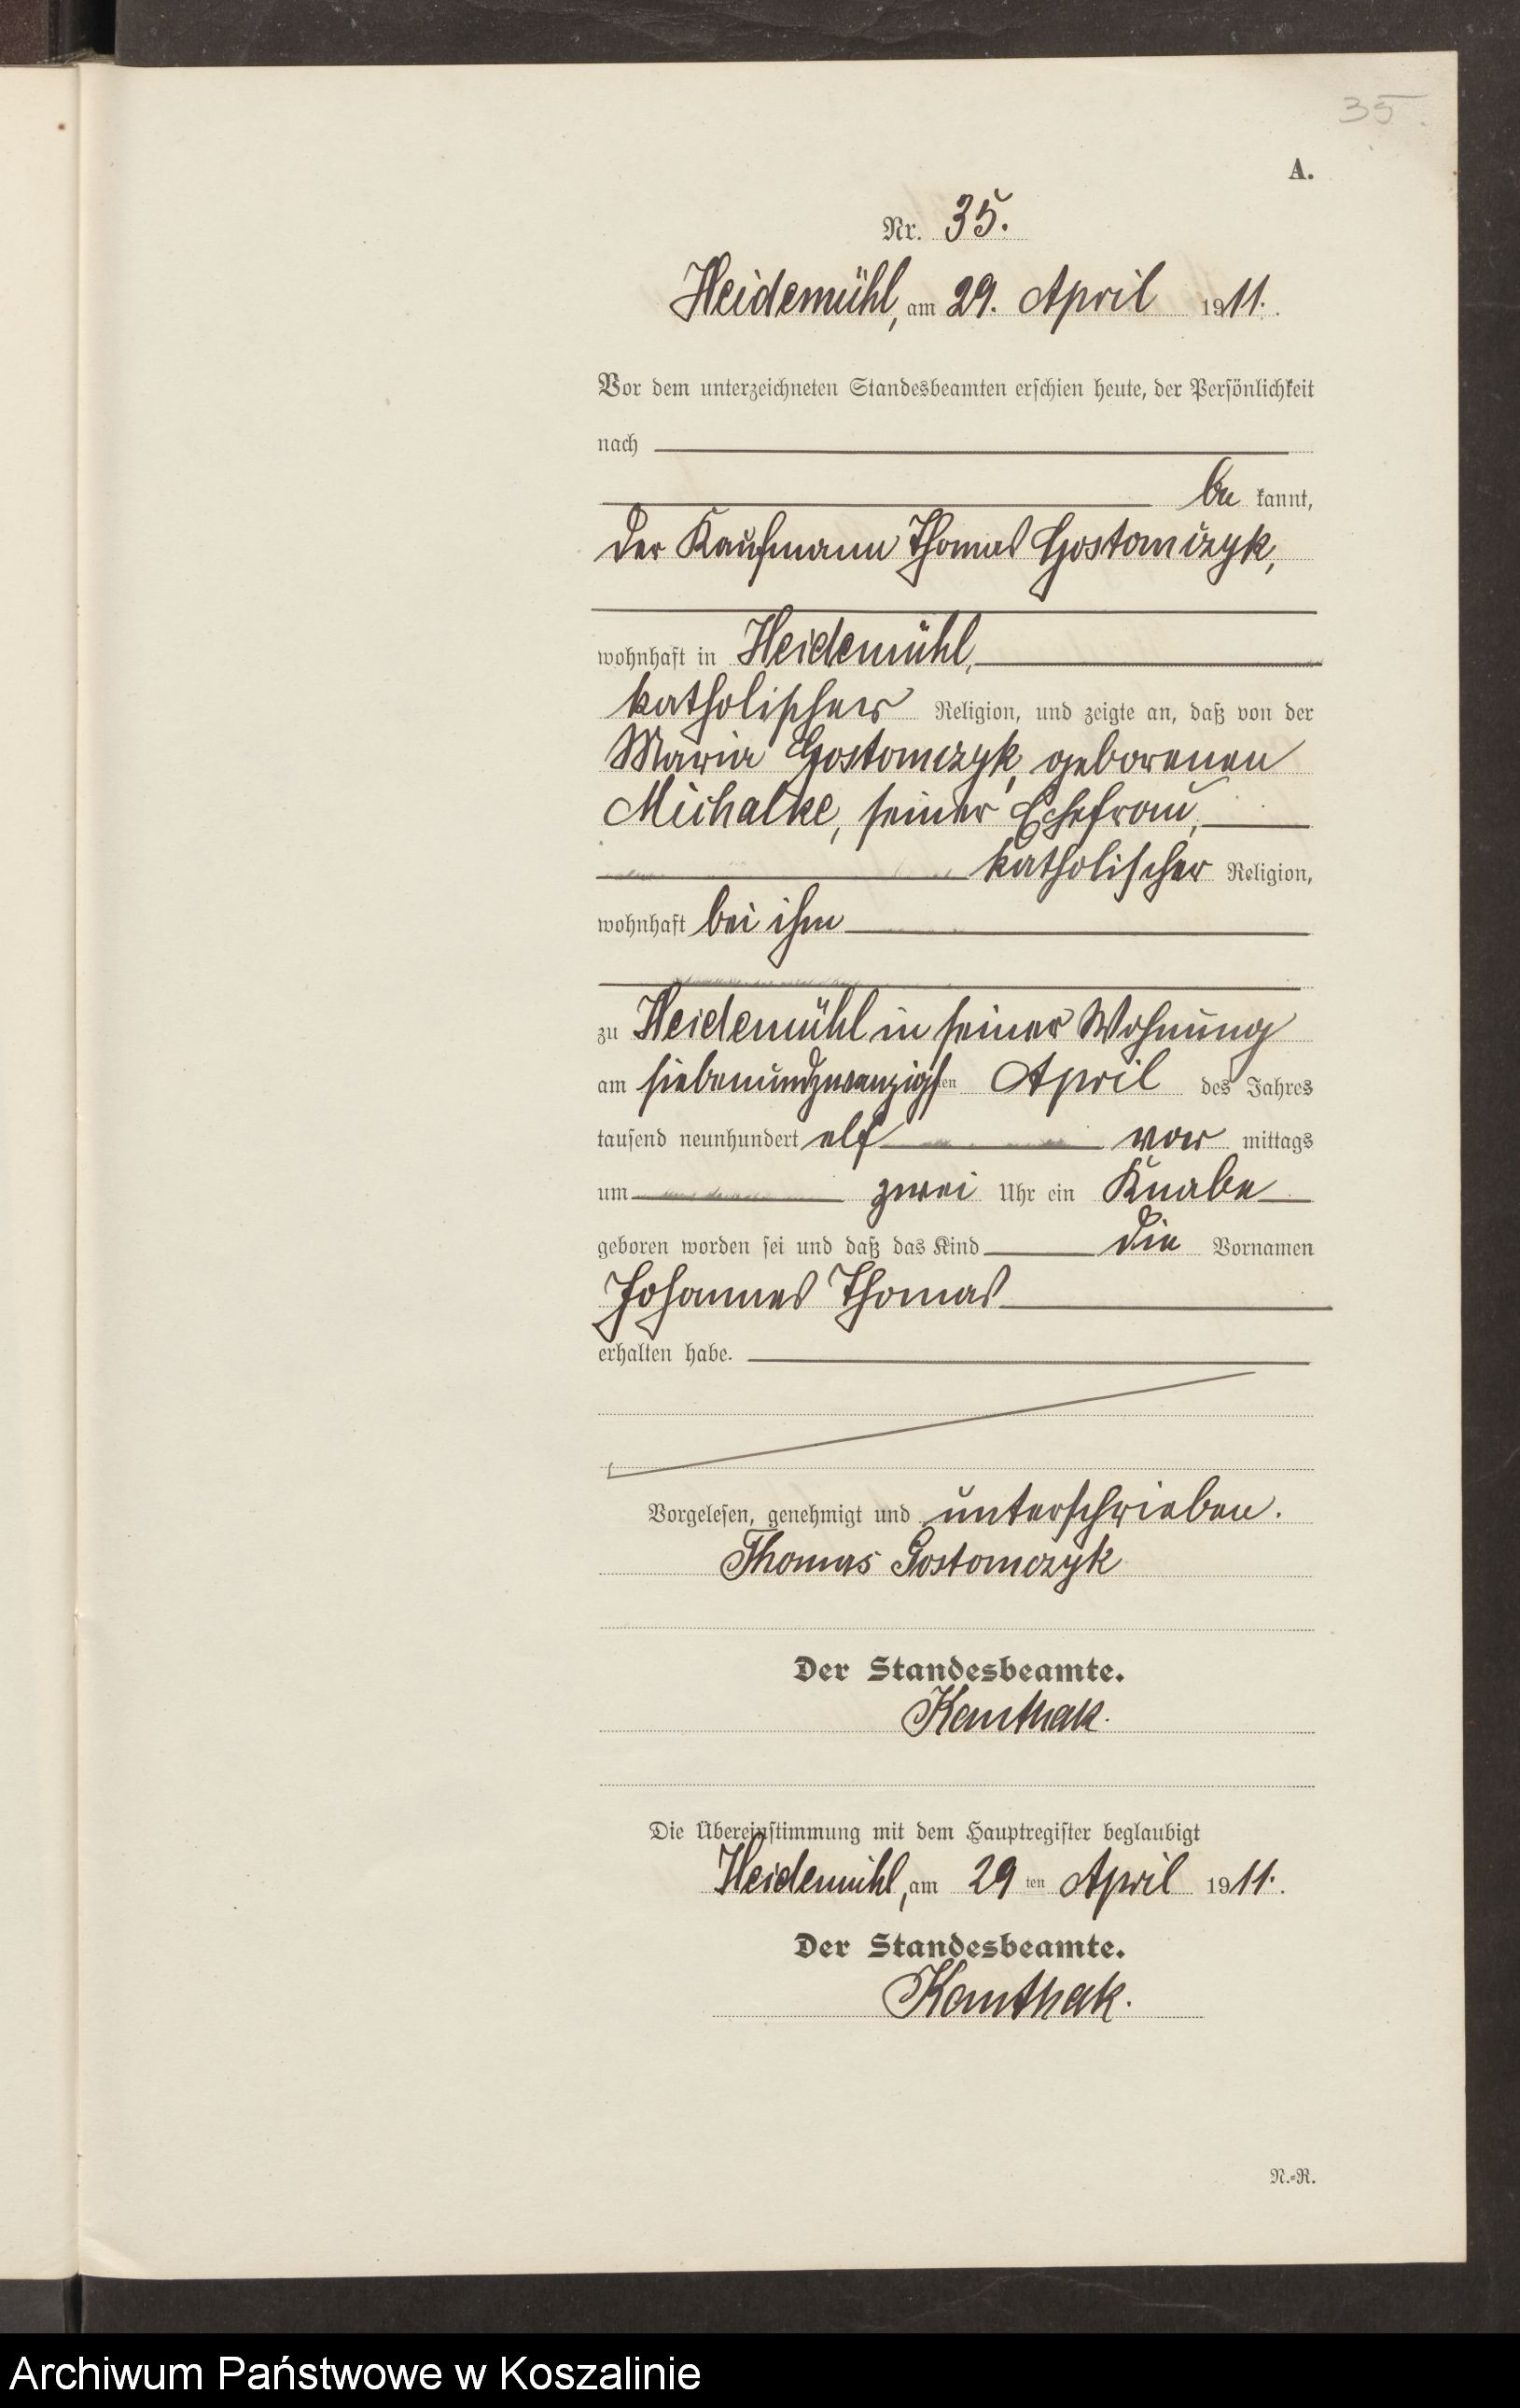 35.
A.
Nr. 35.
Heidemühl, am 29. April 1911.
Vor dem unterzeichneten Standesbeamten erschien heute, der Persönlichkeit
nach
be kannt,
der Kaufmann Thomas Gostomczyk,
wohnhaft in Heidemühl,
katholischer Religion, und zeigte an, daß von der
Maria Gostomczyk, geborenen
Michalke, seiner Ehefrau,
katholischer Religion,
wohnhaft bei ihm
zu Heidemühl in seiner Wohnung
am siebenundzwanzigsten April des Jahres
tausend neunhundert elf vor mittags
um zwei Uhr ein Knabe
geboren worden sei und daß das Kind die Vornamen
Johannes Thomas
erhalten habe.
Vorgelesen, genehmigt und unterschrieben.
Thomas Gostomczyk
Der Standesbeamte.
Kanthak.
Die Übereinstimmung mit dem Hauptregister beglaubigt
Heidemühl, am 29 ten April 1911.
Der Standesbeamte.
Kanthak.
N.-R.
Archiwum Państwowe w Koszalinie